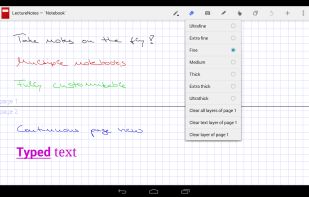 LectureNotes – Notebook
Ultrafine
Extra fine
Fine
Medium
Thick
Extra thick
Ultrathick
Clear all layers of page 1
Clear text layer of page 1
Clear layer of page 1
Take notes on the fly?
Multiple notebooks
Fully customizable
page 1
page 2
Continuous page view
Typed text